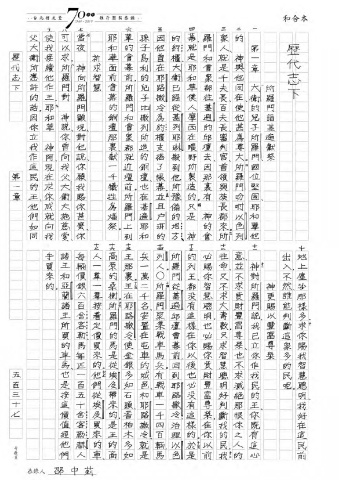 70
和合本
歷代志下
所羅門
第一章 大衛的兒子所羅門國位堅固耶和華他
的神與他同在使他甚為尊大所羅門吩咐以色列
眾人就是千夫長百夫長審判官首領與族長都來所
羅門和會眾都往基遍的邱壇去因那裏有神的會
幕就是耶和華僕人摩西在曠野所製造的只是神
的約櫃大衛已經從基列耶琳搬到他所預備的地方
因他曾在耶路撒冷為約櫃支搭了帳幕並且戶珥的
孫子烏利的兒子比撒列所造的銅壇也在基遍耶和
華的會幕前所羅門和會眾都就近壇前所羅門上到
耶和華面前會幕的銅壇那裏獻一千犧牲為燔祭
祈求智慧
當夜神向所羅門顯現對他說你願我賜你甚麼你
可以求所羅門對神說你曾向我父大衛大施慈愛
使我接續他作王耶和華神阿現在求你成就向我
父大衛所應許的話因你立我作這民的王他們如同
地上塵沙那樣多求你賜我智慧聰明我好在這民前
出入不然誰能判斷這眾多的民呢
神更賜以豐富尊榮
神對所羅門說我已立你作我民的王你既有這心
意並不求貲財豐富尊榮也不求滅絕那恨你之人的
性命又不求大壽數只求智慧聰明好判斷我的民我
必賜你智慧聰明也必賜你貲財豐富尊榮在你以前
的列王都沒有這樣在你以後也必沒有這樣的於是
所羅門從基遍邱壇會幕前回到耶路撒冷治理以色
列人所羅門聚集戰車馬兵有戰車一千四百輛馬
兵一萬二千名安置在屯車的城邑和耶路撒冷就是
王那裏王在耶路撒冷使金銀多如石頭香柏木多如
高原的桑樹所羅門的馬是從埃及帶來的是王的商
人一羣一羣按著定價買來的他們從埃及買來的車
每輛價銀六百舍客勒馬每匹一百五十舍客勒赫人
諸王和亞蘭諸王所買的車馬也是按這價值經他們
手買來的
歷代志下
第一章
五百三十七